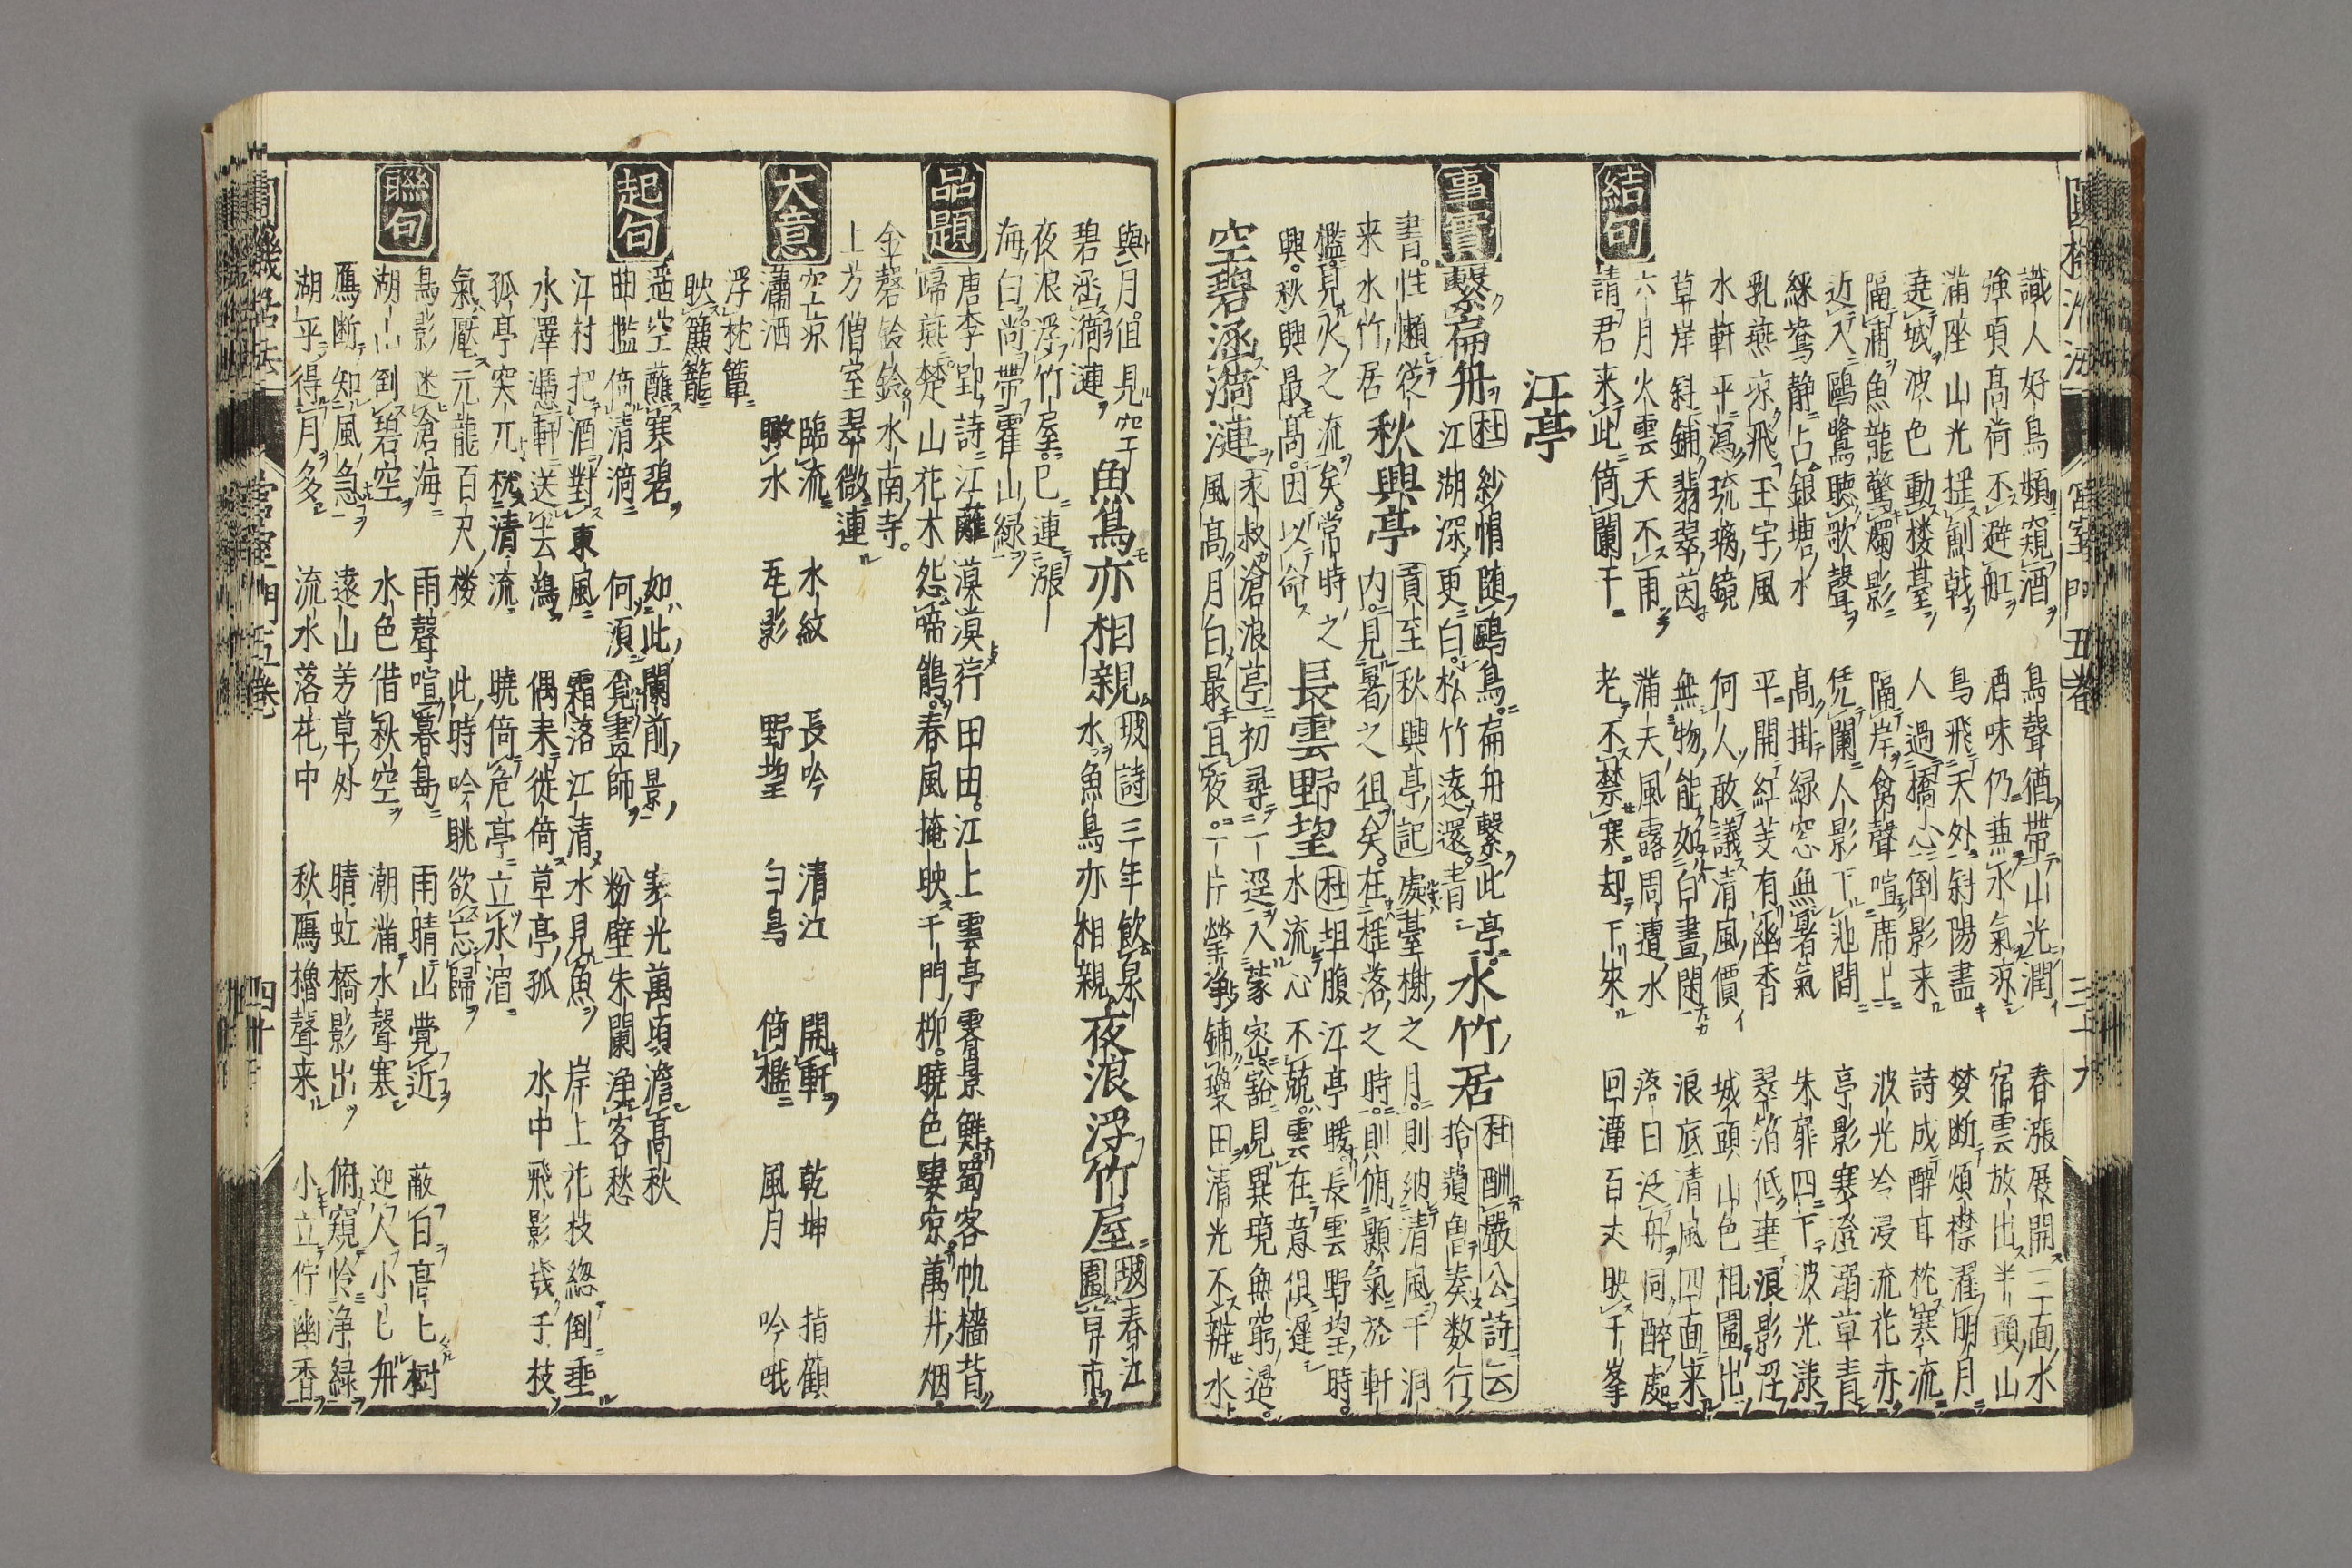 識人好鳥頻窺酒 鳥聲猶帶山光潤 春漲展開三面水
強項高荷不避舡 酒味仍兼水氣涼 宿雲放出半頭山
滿座山光挺劍戟 鳥飛天外斜陽盡 夢断煩襟濯明月
遶城波色動楼臺 人過橋心倒影来 詩成醉耳枕寒流
隔浦魚龍驚燭影 隔岸禽聲喧席上 波光冷浸流花赤
近入鷗鷺聽歌聲 凭闌人影下池間 亭影寒澄溺草青
綵鴛静占銀塘水 高掛緑窓無暑氣 朱扉四下波光漾
乳燕涼飛玉宇風 平開紅芰有幽香 翠箔低垂浪影浮
水軒平瀉琉璃鏡 何人敢議清風價 城頭山色相圍出
草岸斜鋪翡翠茵 無物能如白晝閑 浪底清風四面来
六月火雲天不雨 滿天風露周遭水 落日泛舟同醉處
結句 請君来此倚闌干 老不禁寒却下來 回潭百丈映千峯
江亭
事實 繋扁舟 杜 紗帽随鷗鳥扁舟繋此亭 江湖深更白松竹遠還青 水竹居 杜酬嚴公詩云 拾遺曽奏数行
書性懶從来水竹居 秋興亭 賈至秋興亭記 處臺榭之月則納清風千洞内見暑之徂矣在榱落之時則俯顥氣於軒
檻見火之流矣常時之興秋興最高因以命 長雲野望 杜 坦腹江亭暖長雲野望時 水流心不競雲在意俱遲
空碧涵漪漣 永叔滄浪亭 初尋一逕入蒙密豁見異境無窮邉 風高月白最宜夜一片瑩净鋪瓊田清光不辨水
與月但見空碧涵漪漣 魚鳥亦相親 坡詩 三年飲泉水魚鳥亦相親 夜浪浮竹屋 坡 春江圍草市
夜浪浮竹屋已連漲海白尚帶霍山緑
品題 唐李郢詩江蘺漠漠荇田田江上雲亭霽景鮮蜀客帆檣背歸燕楚山花木怨啼鵑春風掩映千門柳曉色凄涼萬井烟
金磬鈴鈴水南寺上芳僧室翠微連
大意 空亡凉 臨流 水紋 長吟 清江 開軒 乾坤 指顧
瀟洒 瞰水 互影 野望 白鳥 倚檻 風月 吟哦
浮枕簟
映簾籠
起句 遥空蘸寒碧 如此闌前景 家光萬頃澹高秋
曲檻倚清漪 何須覔畫師 粉壁朱闌浄客愁
江村把酒對東風 霜落江清水見魚 岸上花枝總倒垂
水澤憑軒送去鴻 偶来徙倚草亭孤 水中飛影幾千枝
孤亭突兀枕清流 曉倚危亭立水湄
氣壓元龍百尺楼 此時吟眺欲忘歸
聯句 鳥影迷滄海 雨聲喧暮島 雨晴山覺近 蔽白高上樹
湖山倒碧空 水色借秋空 潮滿水聲塞 迎人小已舟
鴈断知風急 遠山芳草外 晴虹橋影出 俯窺怜浄緑
湖平得月多 流水落花中 秋鴈櫓聲来 小立佇幽香